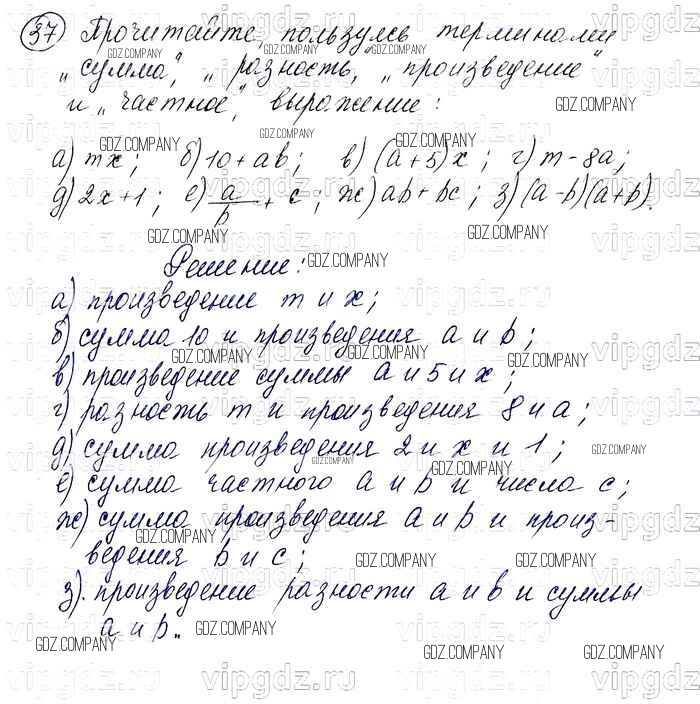 37 Прочитайте, пользуясь терминами
„сумма", „разность", „произведение"
и „частное", выражение:
а) mx; б) 10 + ab; в) (a + 5)x; г) m - 8a;
д) 2x + 1; е) a/b + c; ж) ab + bc; з) (a - b)(a + b).
Решение:
а) произведение m и x;
б) сумма 10 и произведения a и b;
в) произведение суммы a и 5 и x;
г) разность m и произведения 8 и a;
д) сумма произведения 2 и x и 1;
е) сумма частного a и b и числа c;
ж) сумма произведения a и b и произ-
ведения b и c;
з). произведение разности a и b и суммы
a и b.
GDZ.COMPANY
vipgdz.ru